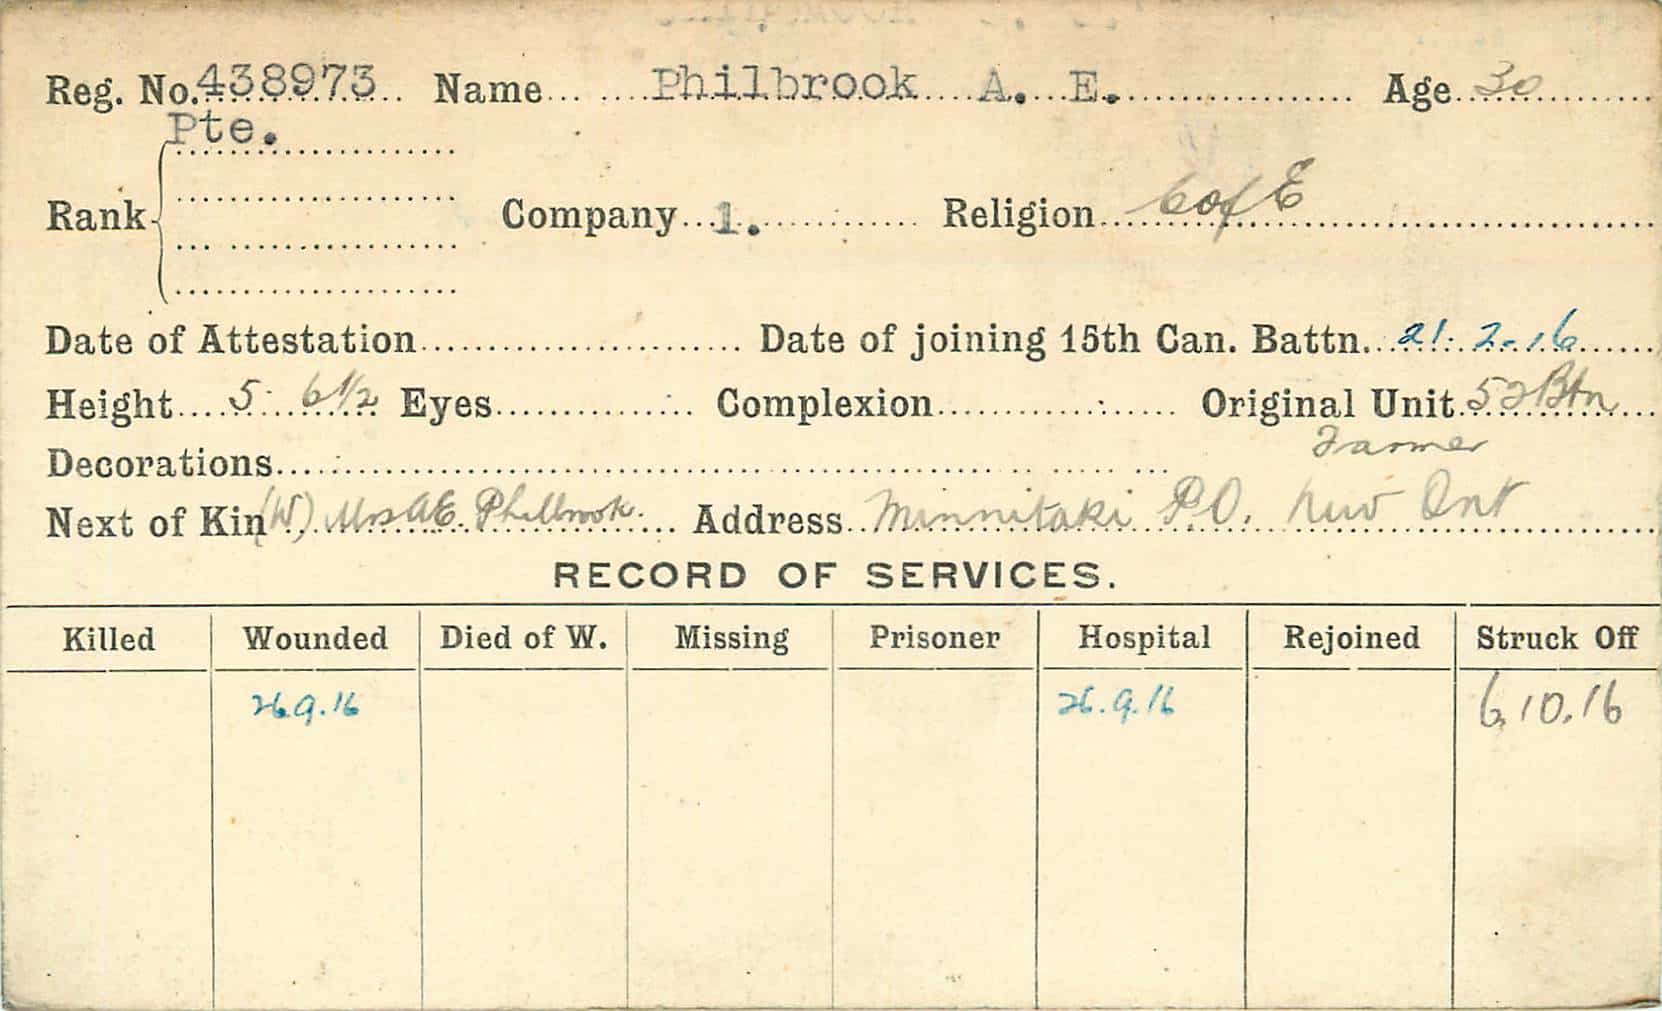 Reg. No. 438973 Name Philbrook A. E. Age 30
Pte.
Rank Company 1. Religion C of E
Date of Attestation Date of joining 15th Can. Battn. 21. 2. 16
Height 5 6 1/2 Eyes Complexion Original Unit 52 Btn
Farmer
Decorations
Next of Kin (W) Mrs A E. Philbrook Address Minnitaki P.O. New Ont
RECORD OF SERVICES.
Killed Wounded Died of W. Missing Prisoner Hospital Rejoined Struck Off
26.9.16 26.9.16 6.10.16